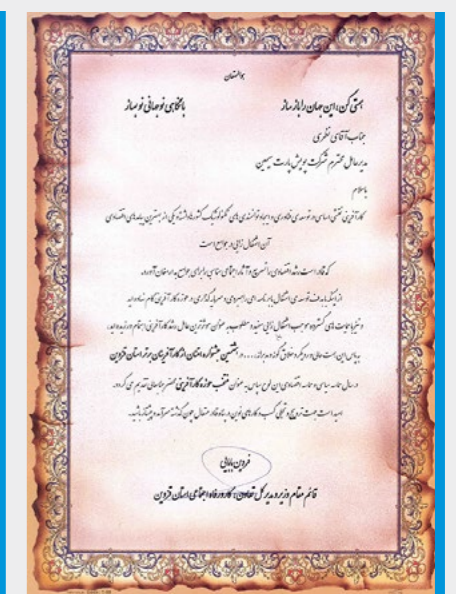 هوالمستعان
همتی کن، این جهان را باز ساز با نگاهی نو جهانی نو بساز
جناب آقای نظری
مدیرعامل محترم شرکت پویش پارت سیمین
با سلام
کارآفرینی نقشی اساسی در توسعه ی فناوری و ایجاد توانمندی های تکنولوژیک کشورها داشته و یکی از بهترین پیامدهای اقتصادی
آن اشتغال زایی در جوامع است
که قادر است رشد اقتصادی را تسریع و آثار اجتماعی مناسبی را برای جوامع به ارمغان آورد.
از اینکه با هدف توسعه ی اشتغال با برنامه ای راهبردی و سرمایه گذاری در حوزه کارآفرینی گام نهاده اید
و نیز با حمایت های گسترده موجب اشتغال زایی مفید و مطلوب به عنوان موثرترین عامل رشد کارآفرینی اهتمام ورزیده اید،
به پاس این همت عالی و رویکرد خلاق گونه و مدبرانه، ... در هشتمین جشنواره امتنان از کارآفرینان برتر استان قزوین
در سال حماسه سیاسی و حماسه اقتصادی این لوح سپاس به عنوان منتخب حوزه کارآفرینی محضر جنابعالی تقدیم می گردد.
امید است جهت ترویج و تجلی کسب و کارهای نوین در پناه قادر متعال چون گذشته سرآمد و پیشتاز باشید.
فردین بابائی
قائم مقام وزیر و مدیر کل تعاون، کار و رفاه اجتماعی استان قزوین